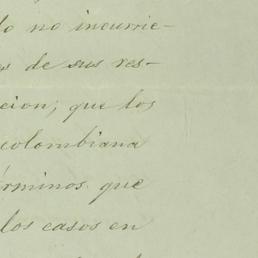 lo no incurrie-
es de sus res-
cion; que los
colombiana
érminos que
los casos en